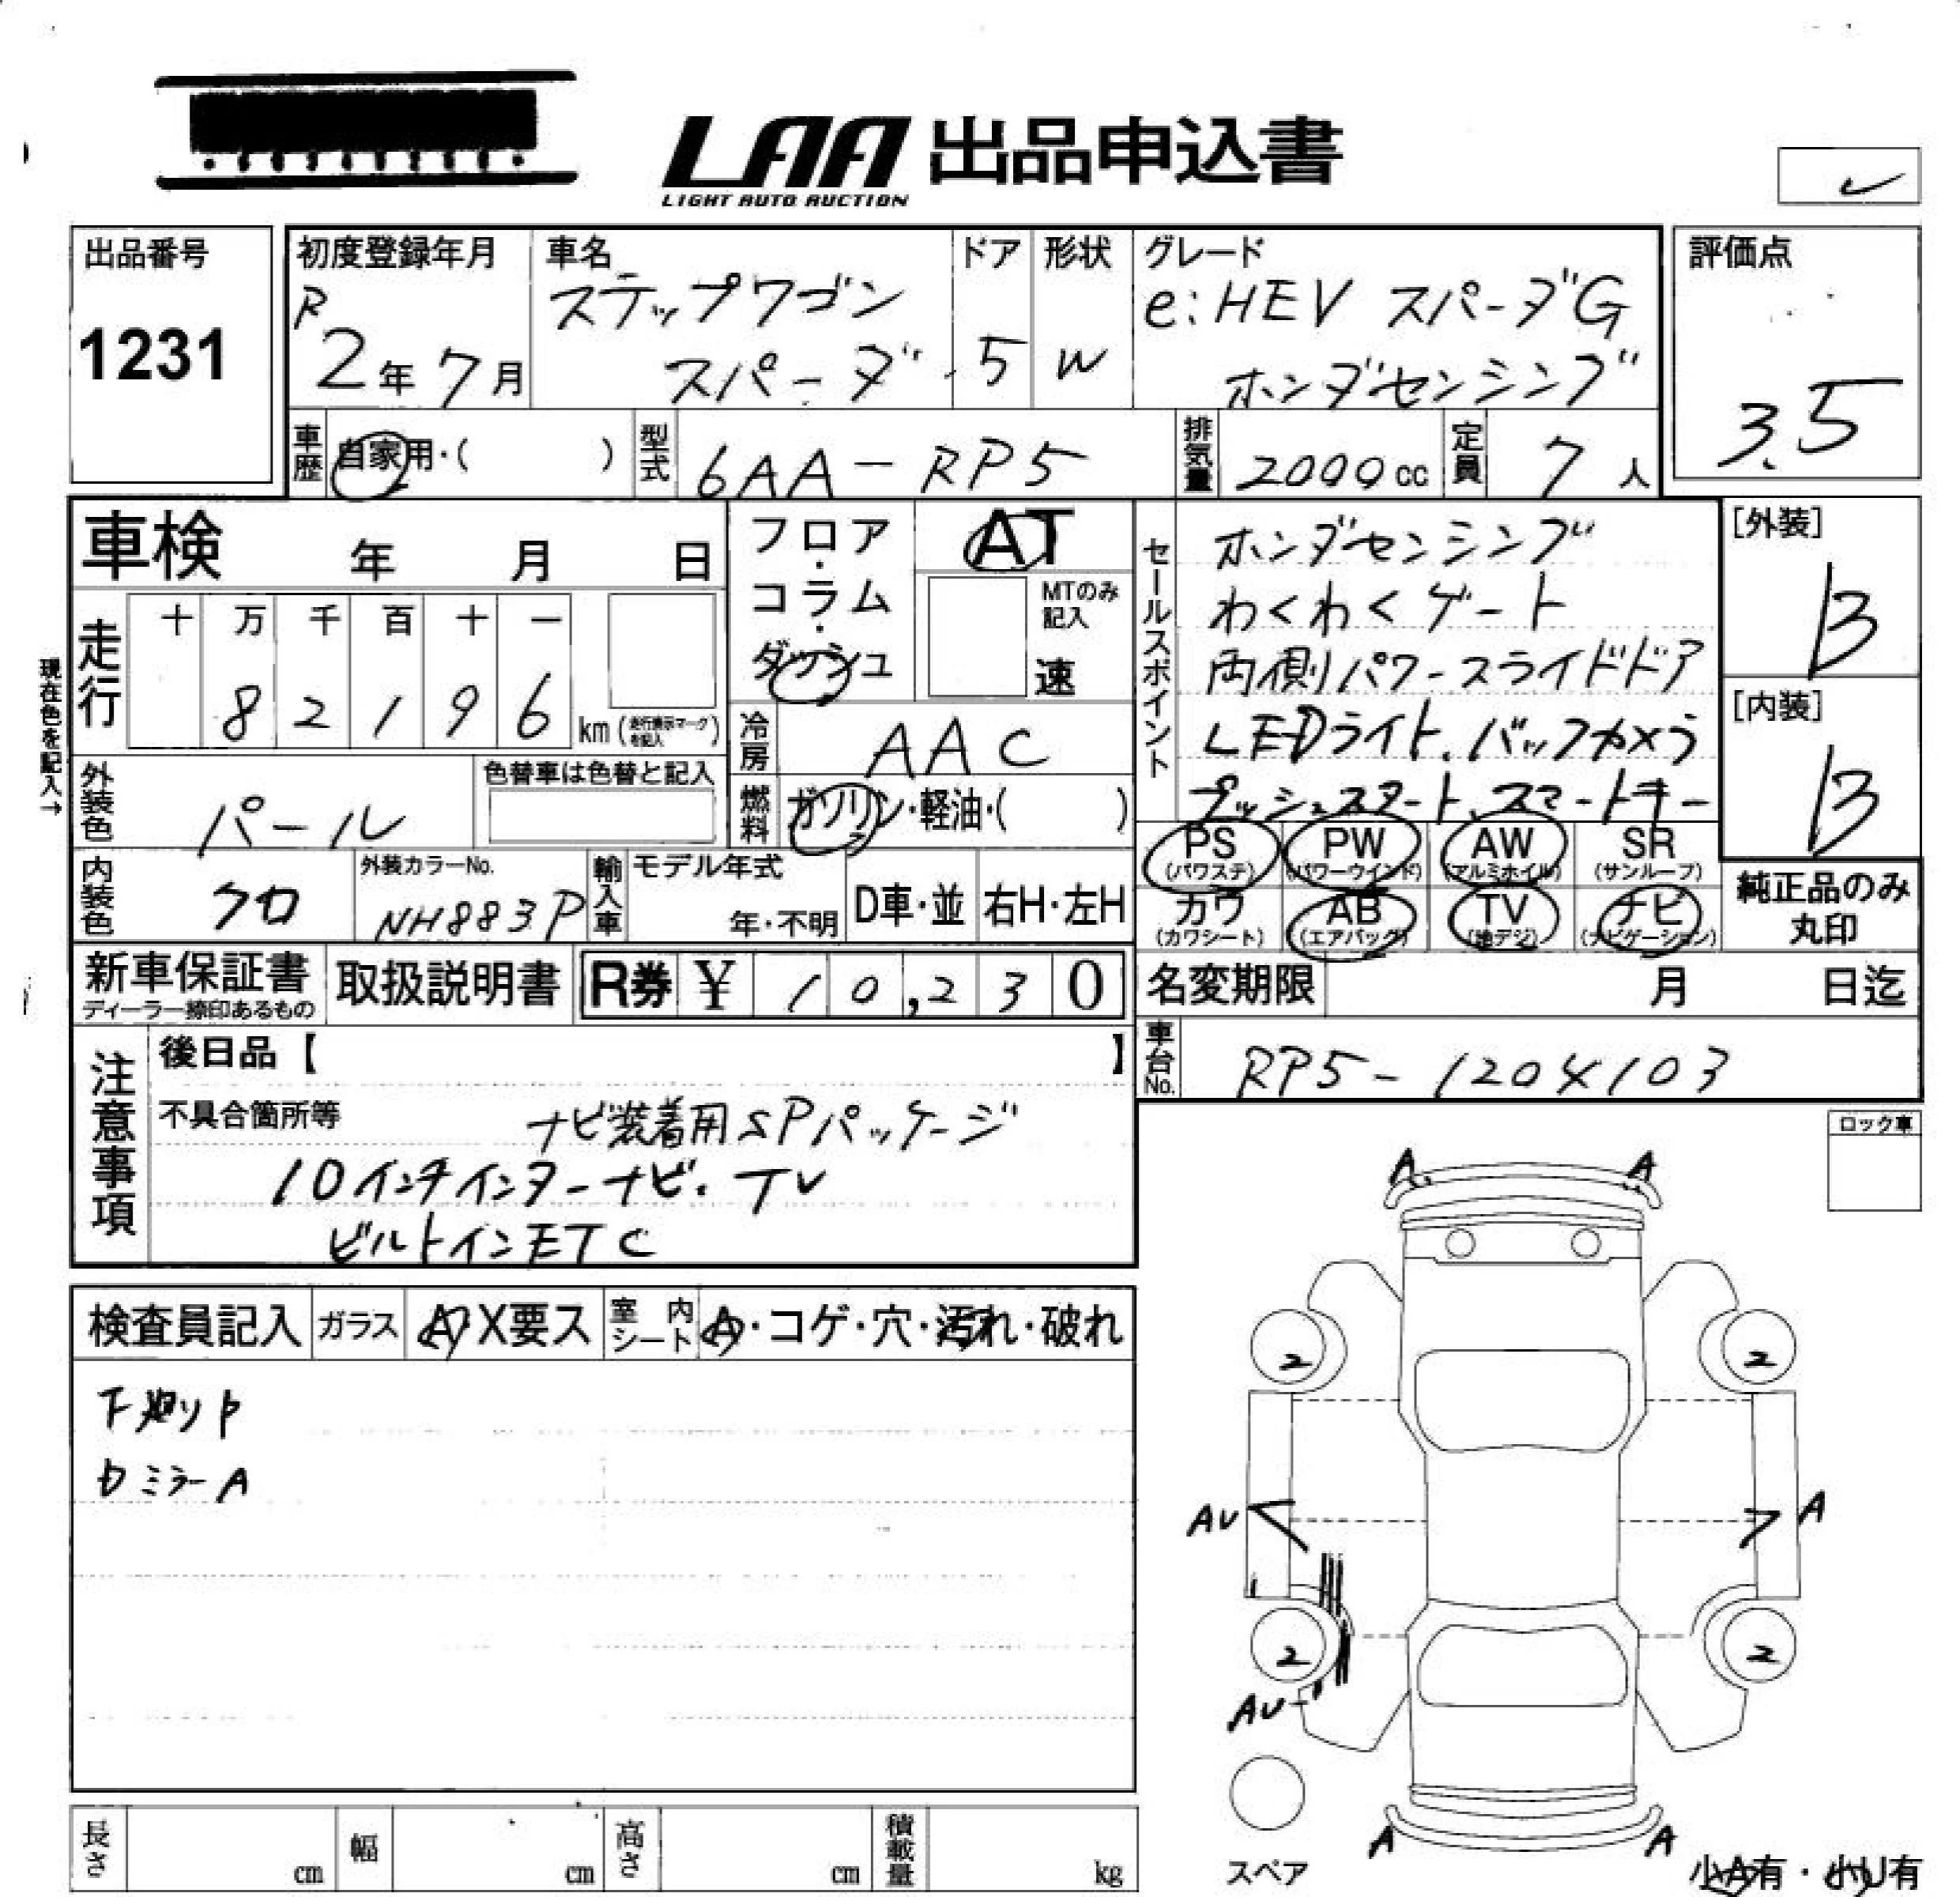 LAA 出品申込書
LIGHT AUTO AUCTION
出品番号
1231
初度登録年月
R
2年7月
車名
ステップワゴン
スパーダ
ドア
5
形状
W
グレード
e:HEV スパーダG
ホンダセンシング
評価点
3.5
車歴
自家用・( )
型式
6AA-RP5
排気量
2000cc
定員
7人
車検 年 月 日
フロア・コラム・ダッシュ
AT
MTのみ記入
速
セールスポイント
ホンダセンシング
わくわくゲート
両側パワースライドドア
LEDライト、バックカメラ
プッシュスタート、スマートキー
[外装]
B
[内装]
B
現在色を記入→
走行
十 万 千 百 十 一
8 2 1 9 6
km(走行表示マークを記入)
冷房
AAC
外装色
パール
色替車は色替と記入
燃料
ガソリン・軽油・( )
PS
(パワステ)
PW
(パワーウインド)
AW
(アルミホイル)
SR
(サンルーフ)
カワ
(カワシート)
AB
(エアバッグ)
TV
(地デジ)
ナビ
(ナビゲーション)
純正品のみ
丸印
内装色
クロ
外装カラーNo.
NH883P
輸入車
モデル年式
年・不明
D車・並
右H・左H
新車保証書
ディーラー捺印あるもの
取扱説明書
R券 ¥ 10,230
名変期限 月 日迄
車台No.
RP5-1204103
注意事項
後日品【 】
不具合箇所等
ナビ装着用SPパッケージ
10インチインターナビ・TV
ビルトインETC
ロック車
検査員記入
ガラス
A X要ス
室内シート
A・コゲ・穴・汚れ・破れ
ミラーA
A A
2 2
AU A
2 2
AU
A A
スペア
小A有・小U有
長さ cm
幅 cm
高さ cm
積載量 kg